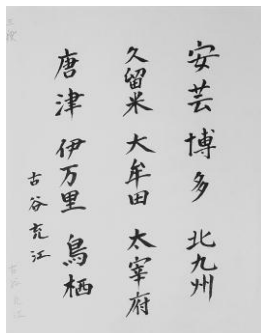 安芸 博多 北九州
久留米 大牟田 太宰府
唐津 伊万里 鳥栖
古谷充江